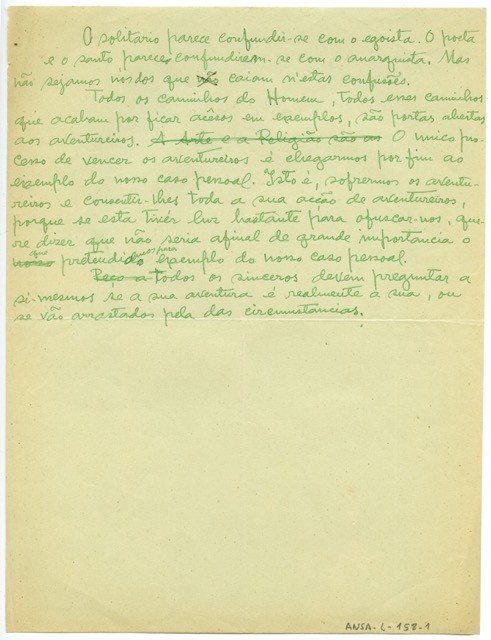 O solitario parece confundir-se com o egoista. O poeta
e o santo parece confundirem-se com o anarquista. Mas
não sejamos nós dos que caiam n'estas confusões.
Todos os caminhos do Homem, todos esses caminhos
que acabam por ficar acêsos em exemplos, são portas abertas
aos aventureiros. A Arte e a Religião são as O unico pro-
cesso de vencer os aventureiros é chegarmos por fim ao
exemplo do nosso caso pessoal. Isto é, soframos os aventu-
reiros e consentir-lhes toda a sua acção de aventureiros,
porque se esta tivér luz bastante para ofuscar-nos, que-
re dizer que não seria afinal de grande importancia o
que nosso pretendidomos para exemplo do nosso caso pessoal.
Peço a Todos os sinceros devem preguntar a
si-mesmos se a sua aventura é realmente a sua, ou
se vão arrastados pela das circumstancias.
ANSA-L-158-1